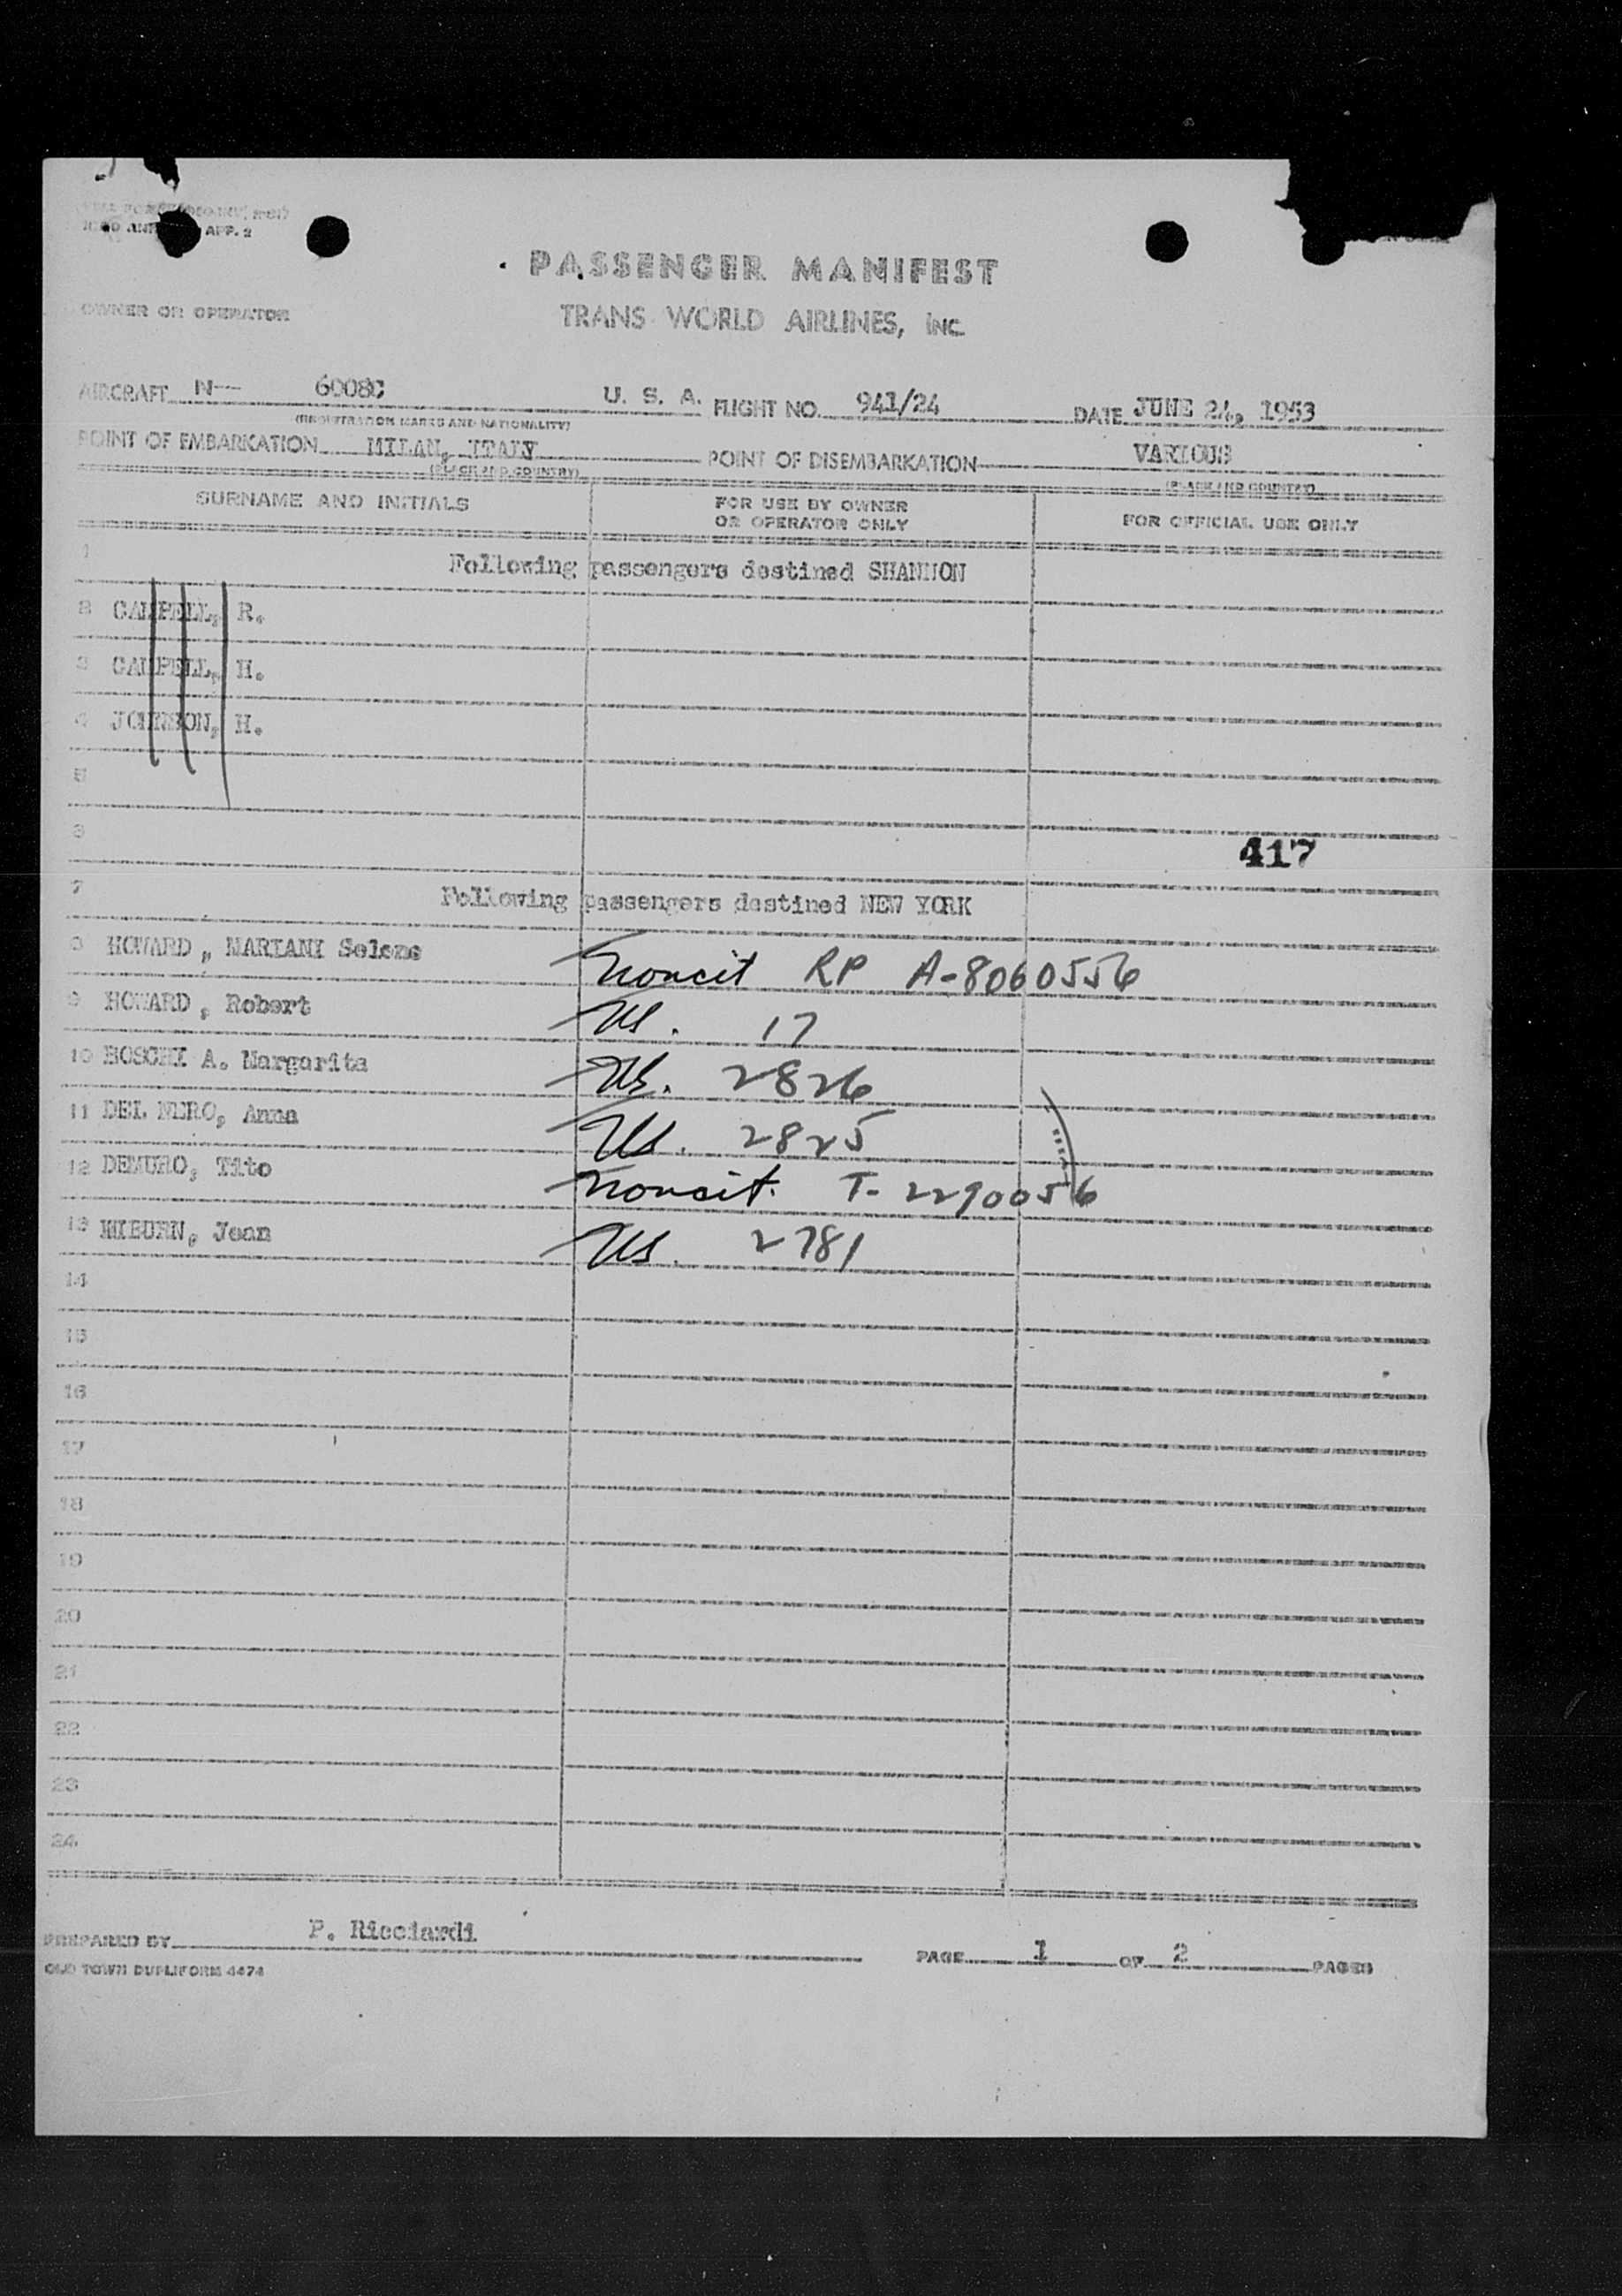 APP. 2
PASSENGER MANIFEST
OWNER OR OPERATOR
TRANS WORLD AIRLINES, INC.
AIRCRAFT N— 6008C U. S. A. FLIGHT NO. 941/24 DATE JUNE 24, 1953
(REGISTRATION MARKS AND NATIONALITY)
POINT OF EMBARKATION MILAN, ITALY POINT OF DISEMBARKATION VARIOUS
(PLACE AND COUNTRY) (PLACE AND COUNTRY)
SURNAME AND INITIALS FOR USE BY OWNER OR OPERATOR ONLY FOR OFFICIAL USE ONLY
1 Following passengers destined SHANNON
2 CAMPELL, R.
3 CAMPELL, H.
4 JOHNSON, H.
5
6
417
7 Following passengers destined NEW YORK
8 HOWARD, MARIANI Selene Noncit RP A-8060556
9 HOWARD, Robert US. 17
10 BOSCHI A. Margarita US. 2826
11 DEL NERO, Anna US. 2825
12 DEMURO, Tito Noncit. T-2290056
13 Jean US. 2781
14
15
16
17
18
19
20
21
22
23
24
PREPARED BY P. Ricciardi
PAGE 1 OF 2 PAGES
OLD TOWN DUPLIFORM 4474